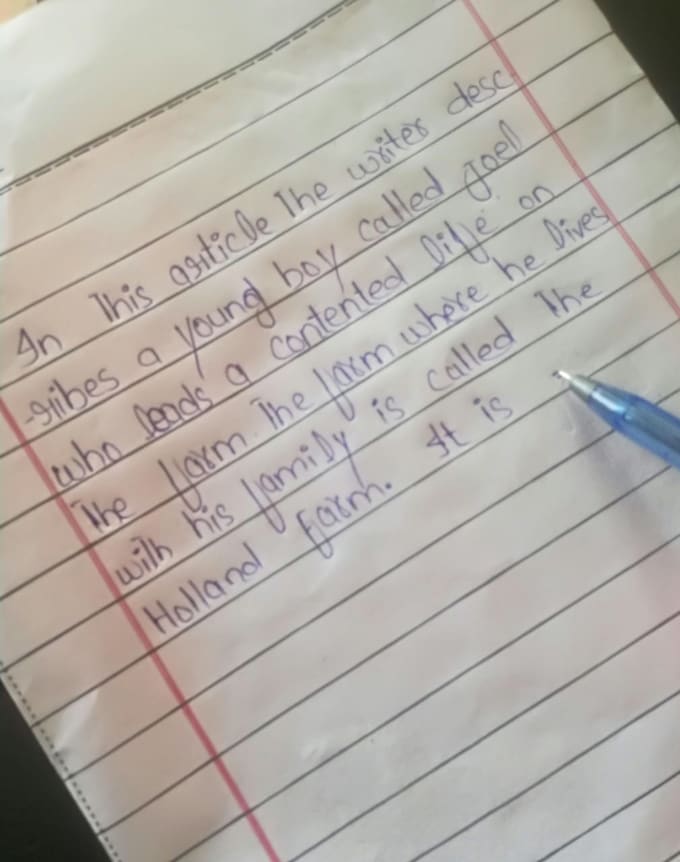 In This article The writer desc
-ribes a young boy called Joel
who leads a contented life on
The farm. The farm where he lives
with his family is called The
Holland Farm. It is